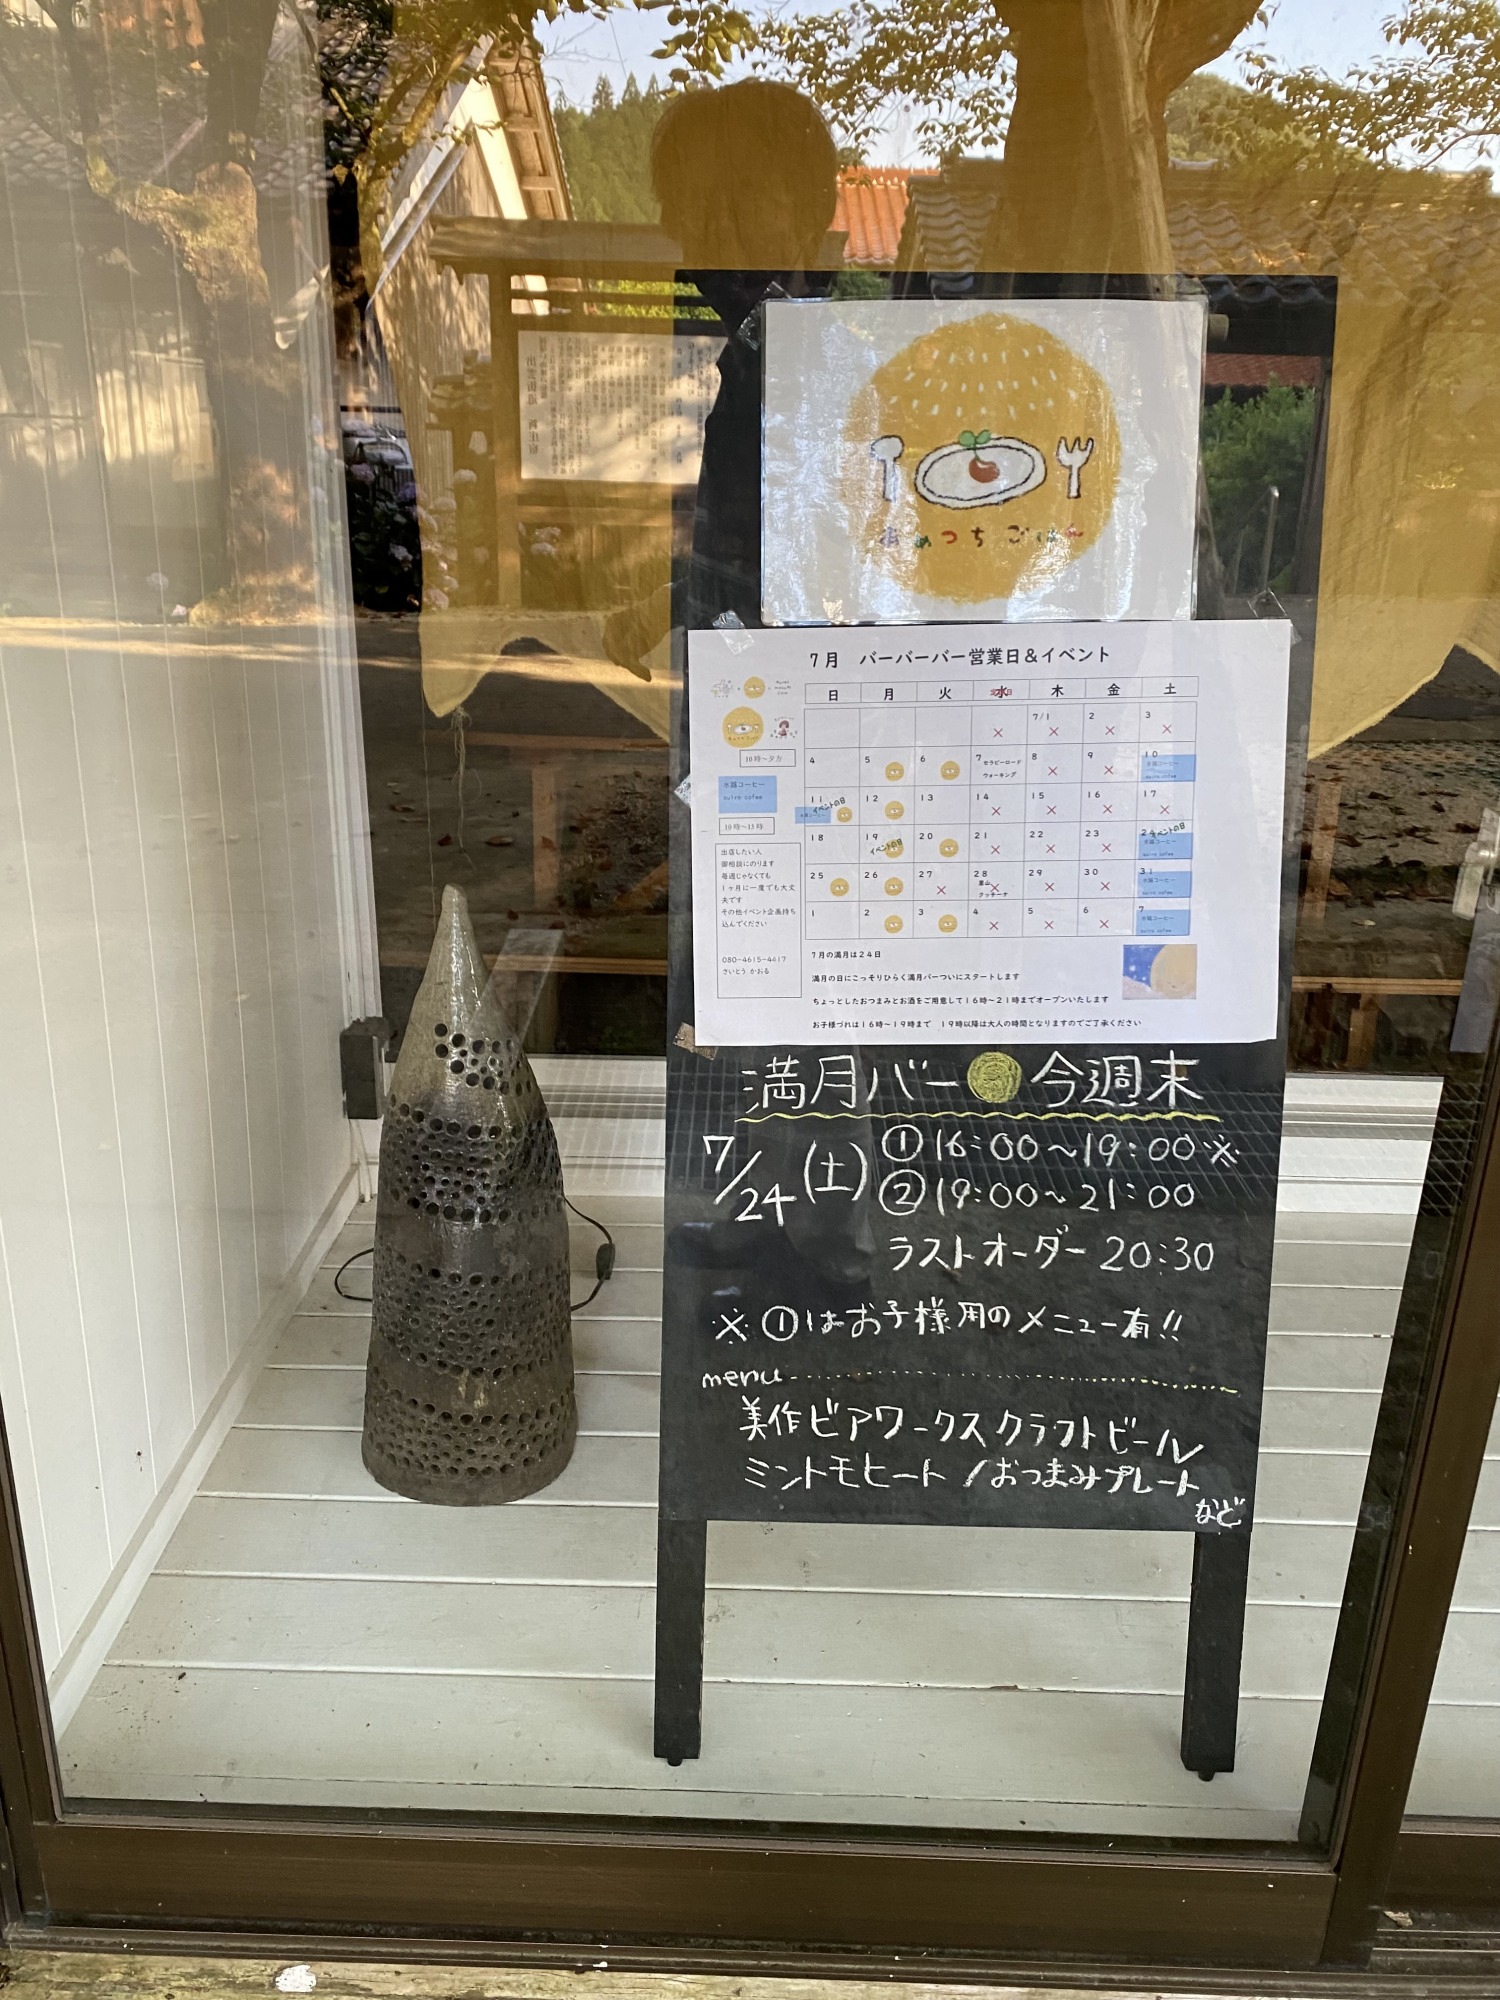 出雲街道 新庄宿
あめつち ごはん
7月 バーバーバー営業日＆イベント
日 月 火 水 木 金 土
7/1 2 3
4 5 6 7 セラピーロード ウォーキング 8 9 10 水路コーヒー
11 イベントの日 水路コーヒー 12 13 14 15 16 17
18 19 イベントの日 20 21 22 23 24 イベントの日 水路コーヒー
25 26 27 28 里山 クッチーナ 29 30 31 水路コーヒー
1 2 3 4 5 6 7 水路コーヒー
10時～夕方
水路コーヒー
suiro cofee
10時～15時
出店したい人
御相談にのります
毎週じゃなくても
1ヶ月に一度でも大丈
夫です
その他イベント企画持ち
込んでください
080-4615-4617
さいとう かおる
7月の満月は24日
満月の日にこっそりひらく満月バーついにスタートします
ちょっとしたおつまみとお酒をご用意して16時～21時までオープンいたします
お子様づれは16時～19時まで 19時以降は大人の時間となりますのでご了承ください
満月バー 今週末
7/24(土) ①16:00～19:00※
②19:00～21:00
ラストオーダー 20:30
※①はお子様用のメニュー有!!
menu
美作ビアワークスクラフトビール
ミントモヒート/おつまみプレート
など